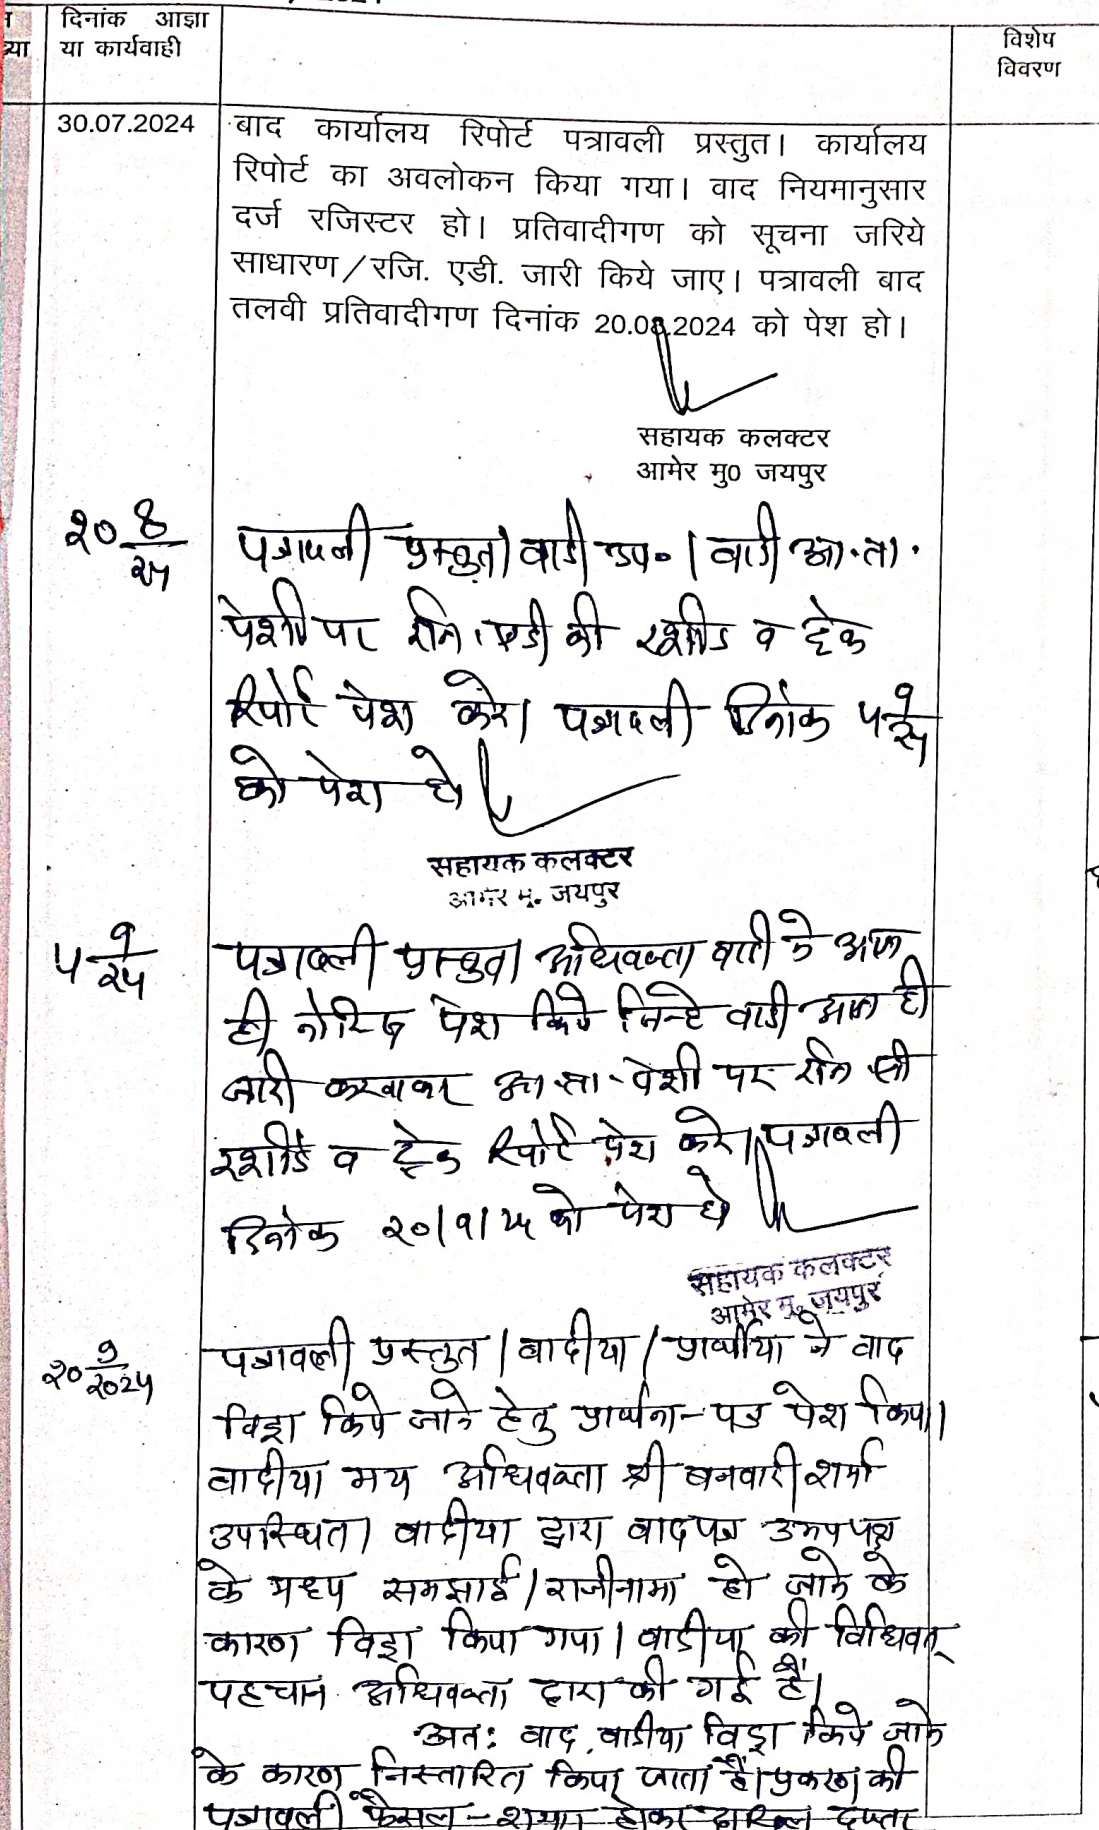 दिनांक आज्ञा
या कार्यवाही
विशेष
विवरण
30.07.2024
बाद कार्यालय रिपोर्ट पत्रावली प्रस्तुत। कार्यालय
रिपोर्ट का अवलोकन किया गया। वाद नियमानुसार
दर्ज रजिस्टर हो। प्रतिवादीगण को सूचना जरिये
साधारण/रजि. एडी. जारी किये जाए। पत्रावली बाद
तलवी प्रतिवादीगण दिनांक 20.08.2024 को पेश हो।
सहायक कलक्टर
आमेर मु0 जयपुर
पत्रावली प्रस्तुत। वादी उप०। वादी आ.ता.
पेशी पर रजि. एडी की रशीद व ट्रेक
रिपोर्ट पेश करे। पत्रावली दिनांक
को पेश हो
सहायक कलक्टर
आमेर मु. जयपुर
पत्रावली प्रस्तुत। अधिवक्ता वादी ने आज
ही नोटिस पेश किये जिन्हे वादी आज ही
जारी करवाकर आ.ता. पेशी पर रजि
रशीद व ट्रेक रिपोर्ट पेश करे। पत्रावली
दिनांक को पेश हो
सहायक कलक्टर
आमेर मु. जयपुर
२० ९/2024
पत्रावली प्रस्तुत। वादीया/प्रार्थीया ने वाद
विड्रा किये जाने हेतु प्रार्थना-पत्र पेश किया।
वादीया मय अधिवक्ता श्री बनवारी शर्मा
उपस्थित। वादीया द्वारा वादपत्र उभयपक्ष
के मध्य समझाई/राजीनामा हो जाने के
कारण विड्रा किया गया। वादीया की विधिवत्
पहचान अधिवक्ता द्वारा की गई है।
अतः वाद वादीया विड्रा किये जाने
के कारण निस्तारित किया जाता है। प्रकरण की
पत्रावली फैसल-शुमार होकर दाखिल दफ्तर